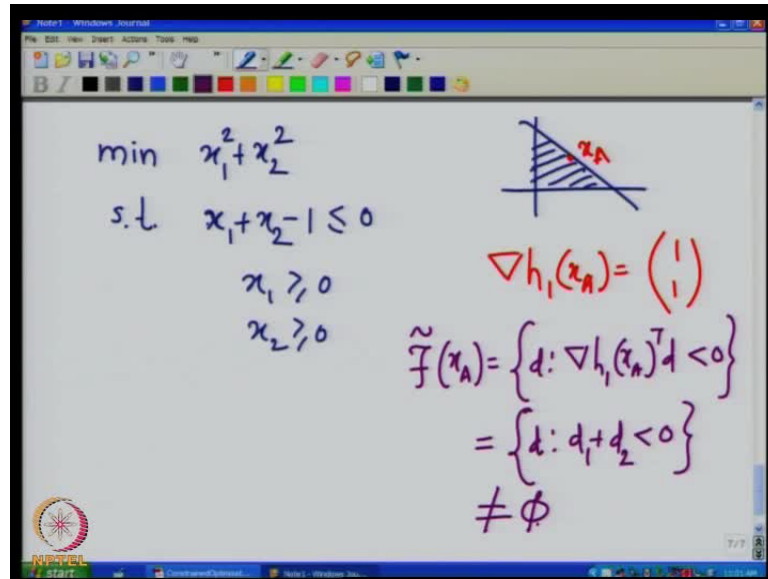 Note1 - Windows Journal
File Edit View Insert Actions Tools Help
B I
min x₁² + x₂²
s.t. x₁ + x₂ - 1 ≤ 0
x₁ ≥ 0
x₂ ≥ 0
x_A
∇h₁(x_A) = (1 1)
F̃(x_A) = {d : ∇h₁(x_A)ᵀd < 0}
= {d : d₁ + d₂ < 0}
≠ ϕ
7/7
NPTEL
start
Note1 - Windows Jou...
11:01 AM